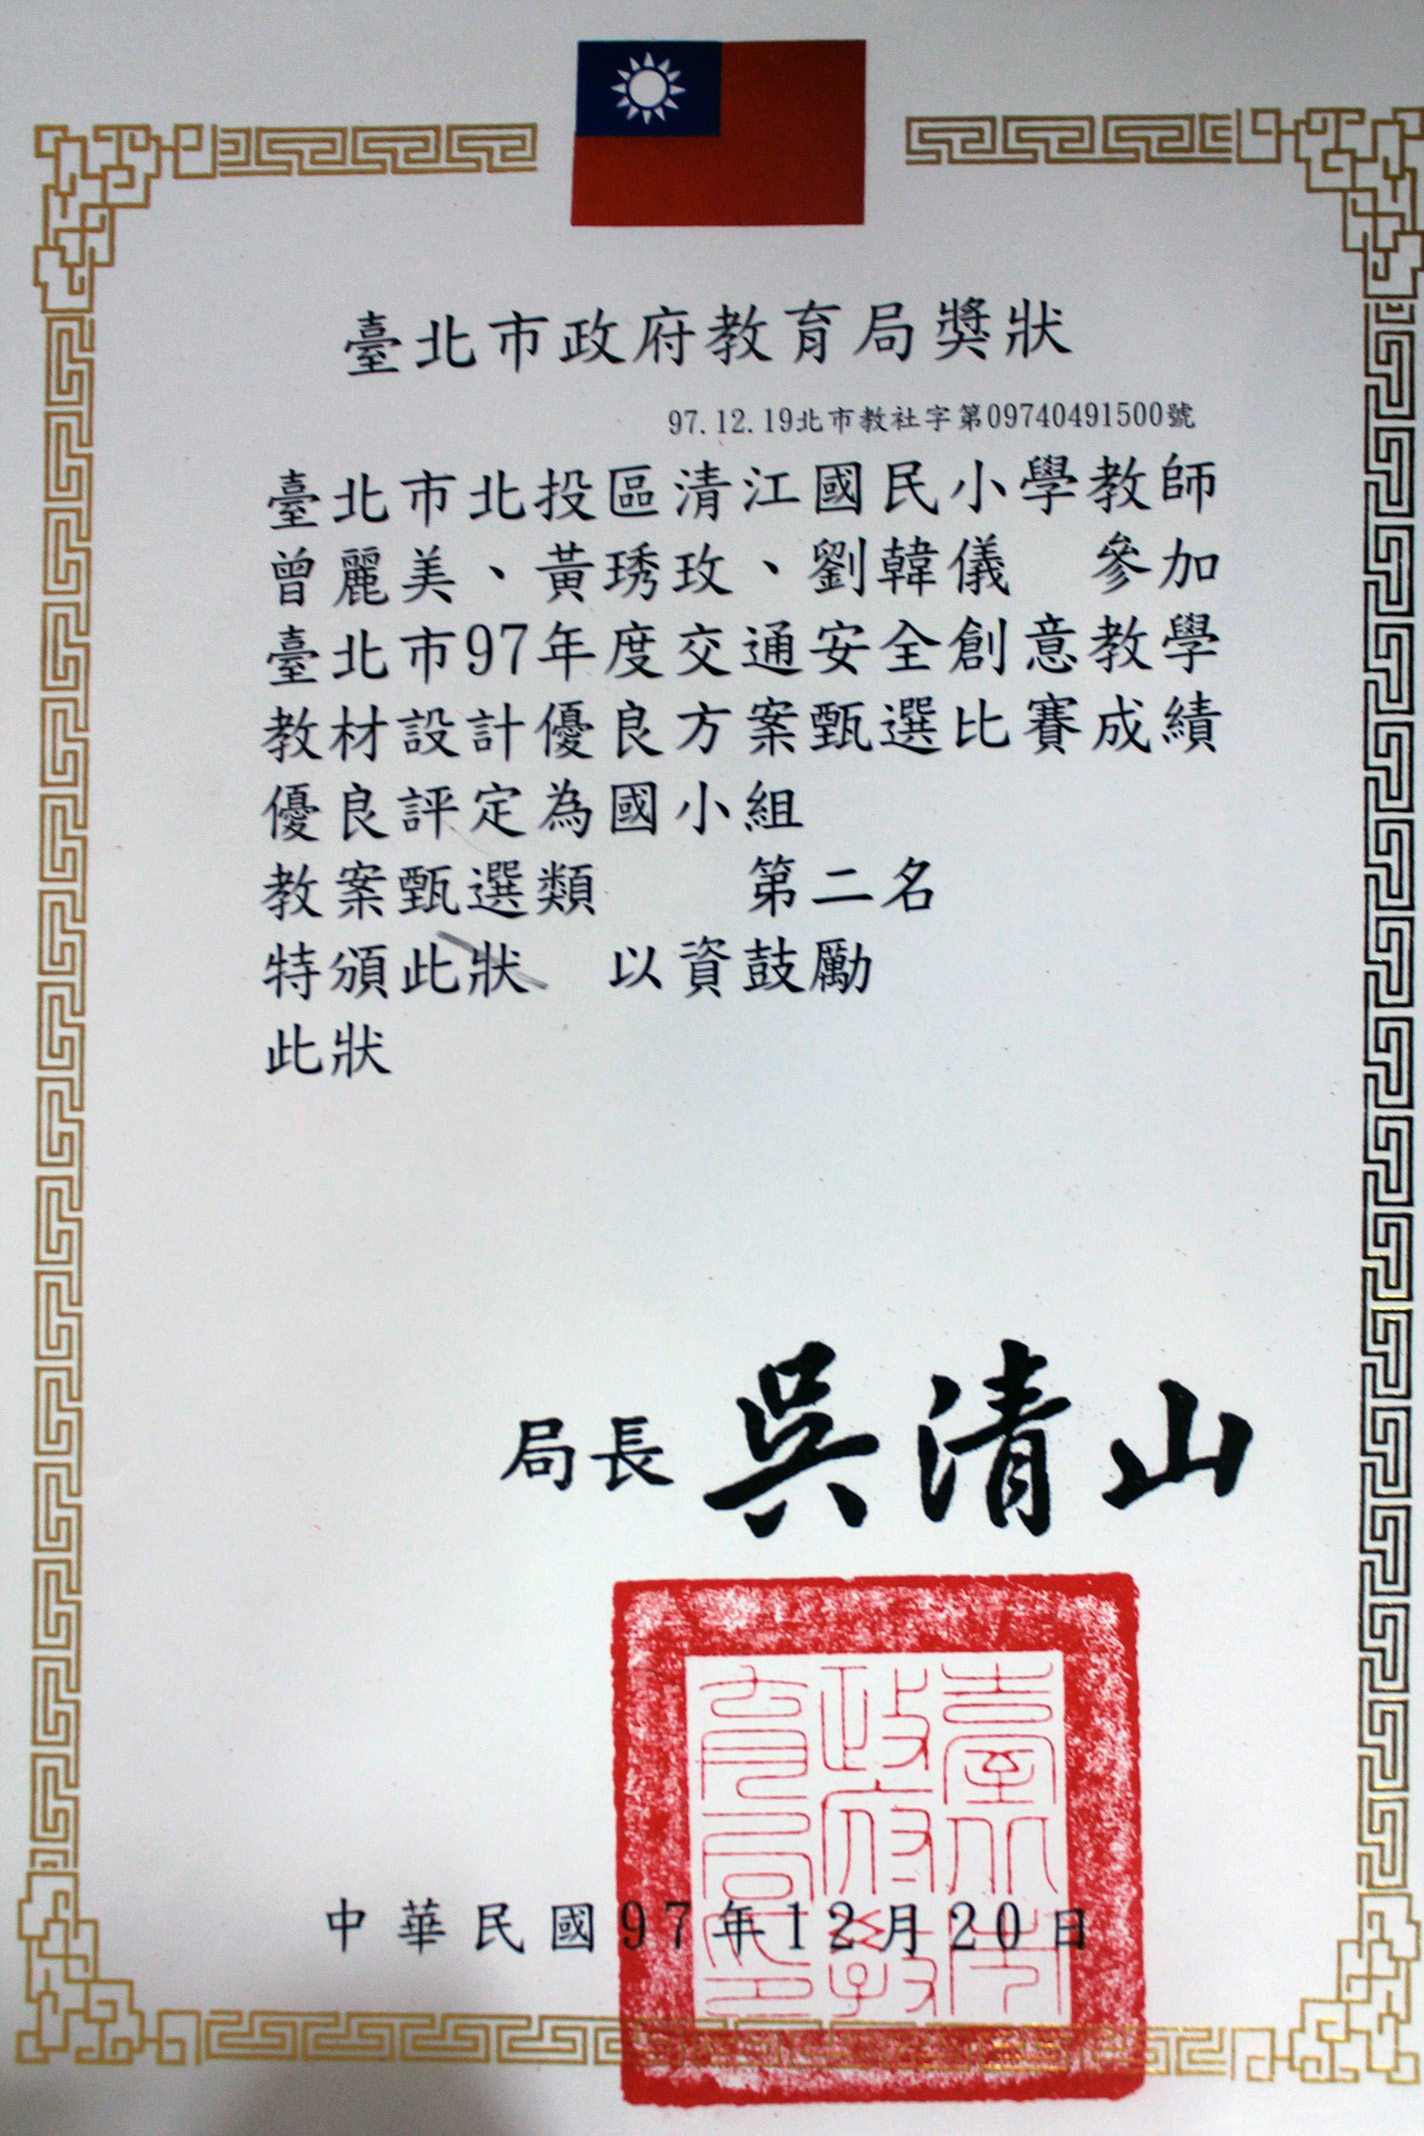 臺北市政府教育局獎狀
97.12.19北市教社字第09740491500號
臺北市北投區清江國民小學教師
曾麗美、黃琇玫、劉韓儀　參加
臺北市97年度交通安全創意教學
教材設計優良方案甄選比賽成績
優良評定為國小組
教案甄選類　　第二名
特頒此狀　以資鼓勵
此狀
局長 吳清山
臺北市
政府教
育局印
中華民國97年12月20日